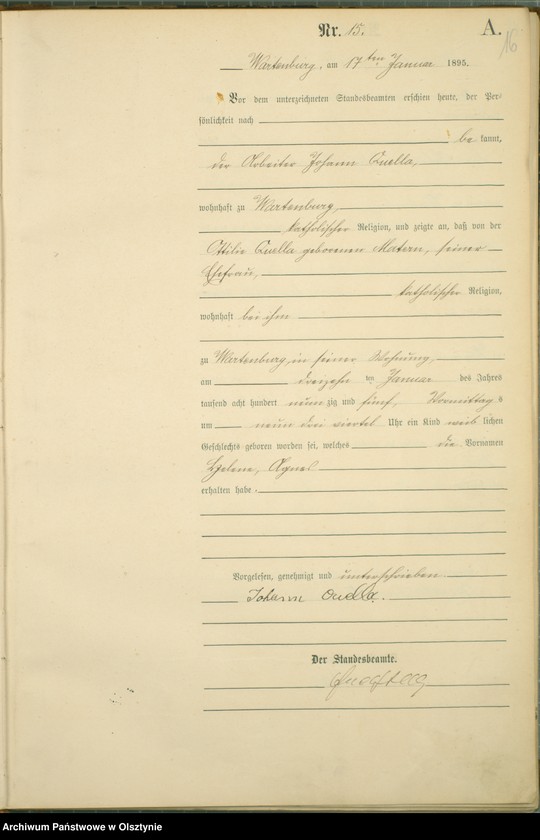 Nr. 15.
A.
16
Wartenburg, am 17ten Januar 1895.
Vor dem unterzeichneten Standesbeamten erschien heute, der Per-
sönlichkeit nach
bekannt,
der Arbeiter Johann Quella,
wohnhaft zu Wartenburg,
katholischer Religion, und zeigte an, daß von der
Ottilie Quella geborenen Matern, seiner
Ehefrau,
katholischer Religion,
wohnhaft bei ihm
zu Wartenburg, in seiner Wohnung,
am dreizehn ten Januar des Jahres
tausend acht hundert neunzig und fünf, Vormittags
um neun drei viertel Uhr ein Kind weiblichen
Geschlechts geboren worden sei, welches die Vornamen
Helene, Agnes
erhalten habe.
Vorgelesen, genehmigt und unterschrieben
Johann Quella.
Der Standesbeamte.
Archiwum Państwowe w Olsztynie